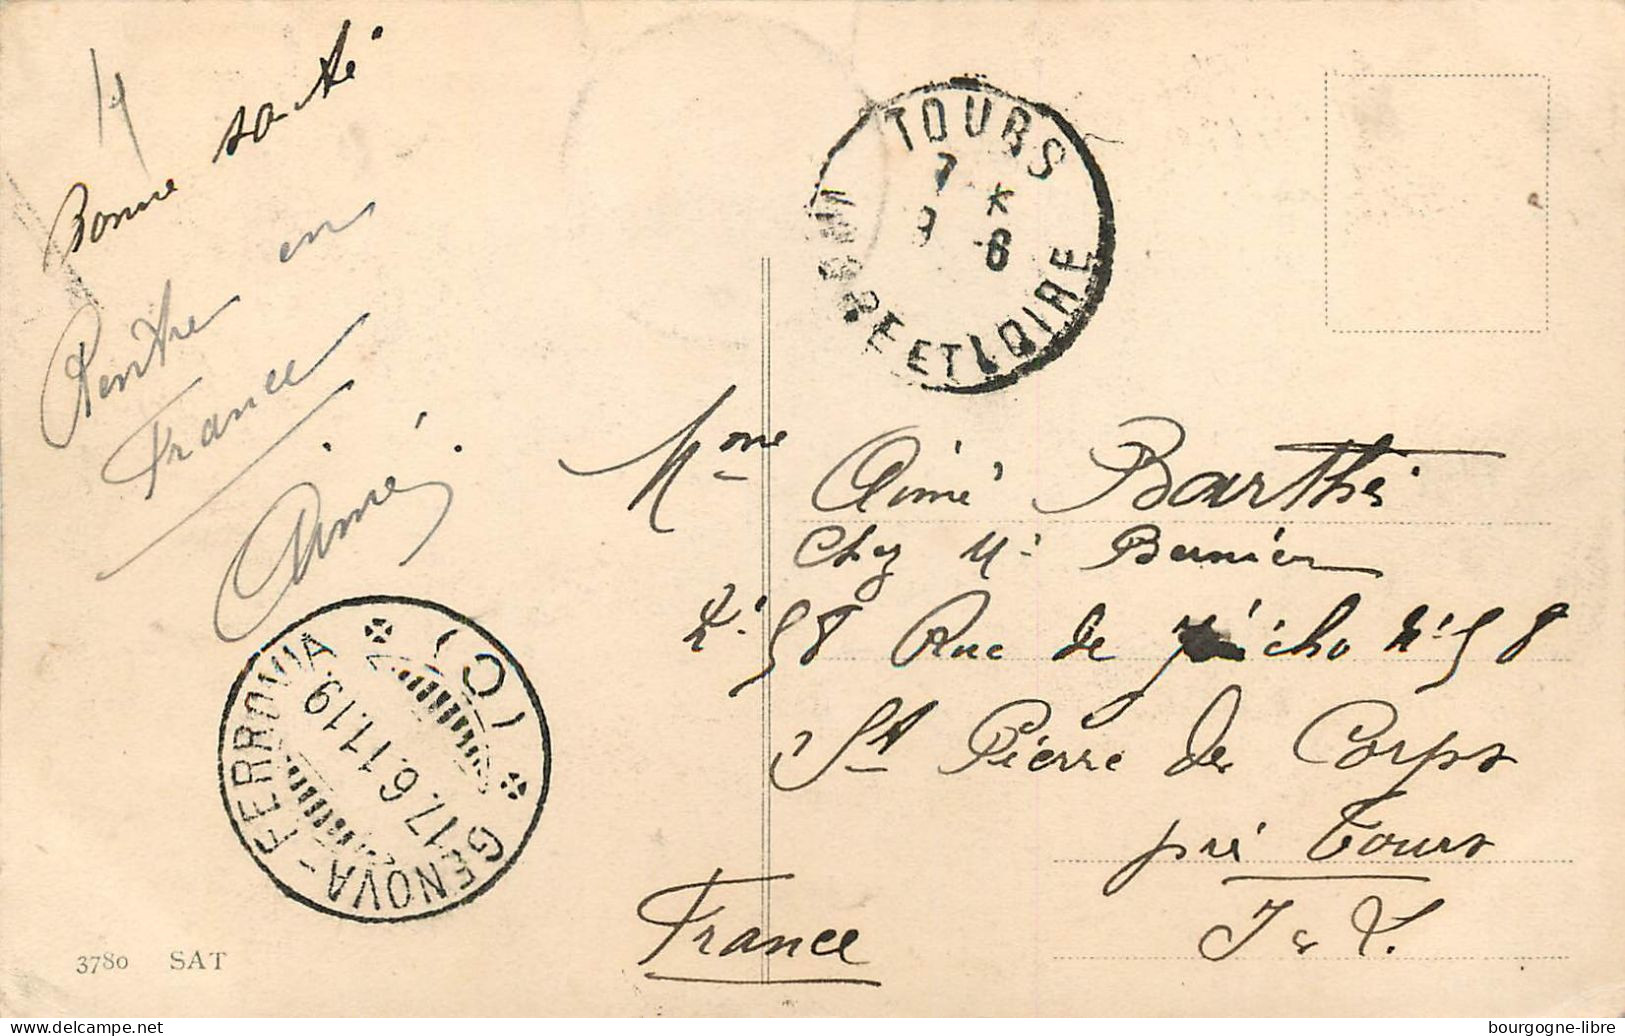 Bonne santé
Rentre en
France
Aimé.
TOURS
7 *
9 6
INDRE ET LOIRE
Mme Aimé Barthé
Chez Mr Bernier
Nº 58 Rue de Nº 58
St Pierre des Corps
pré Tours
I & L.
France
GENOVA-FERROVIA
(C)
17.6.11.19
3780 SAT
bourgogne-libre